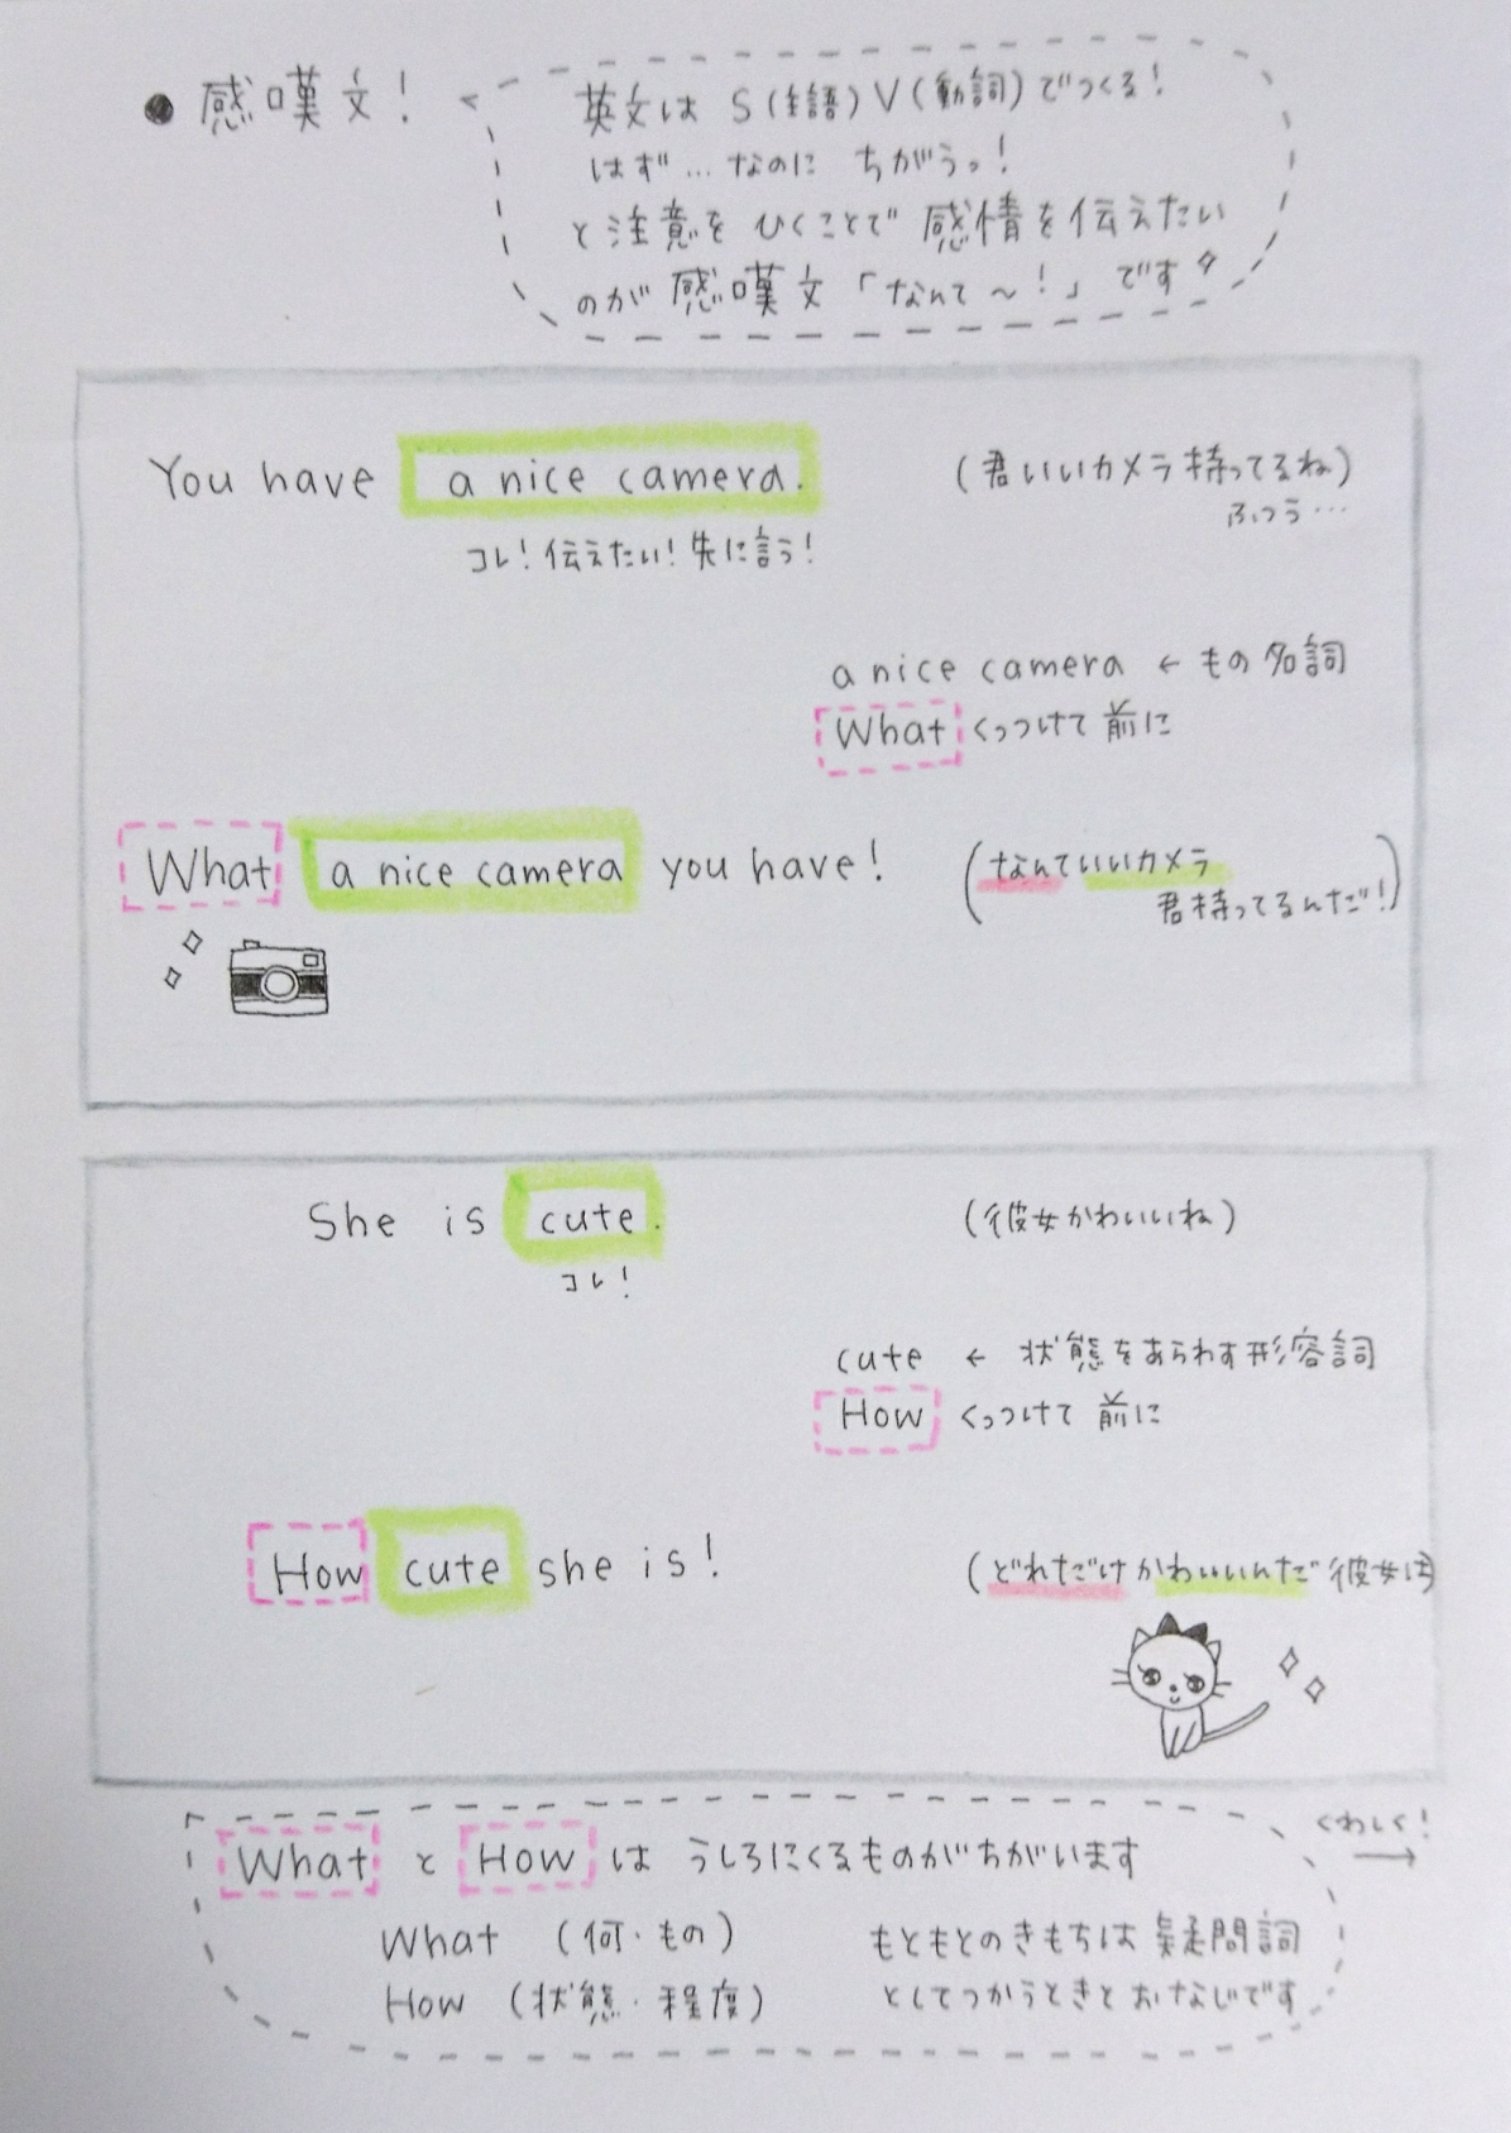 ● 感嘆文!
英文は S(主語)V(動詞)でつくる!
はず…なのに ちがうっ!
と注意を ひくことで 感情を伝えたい
のが 感嘆文「なんて〜!」です
You have a nice camera. (君いいカメラ持ってるね)
ふつう…
コレ!伝えたい!先に言う!
a nice camera ← もの 名詞
What くっつけて 前に
What a nice camera you have! (なんていいカメラ
君持ってるんだ!)
She is cute. (彼女かわいいね)
コレ!
cute ← 状態をあらわす形容詞
How くっつけて 前に
How cute she is! (どれだけかわいいんだ彼女は)
くわしく!
→
What と How は うしろにくるものがちがいます
What (何・もの) もともとのきもちは疑問詞
How (状態・程度) としてつかうときとおなじです